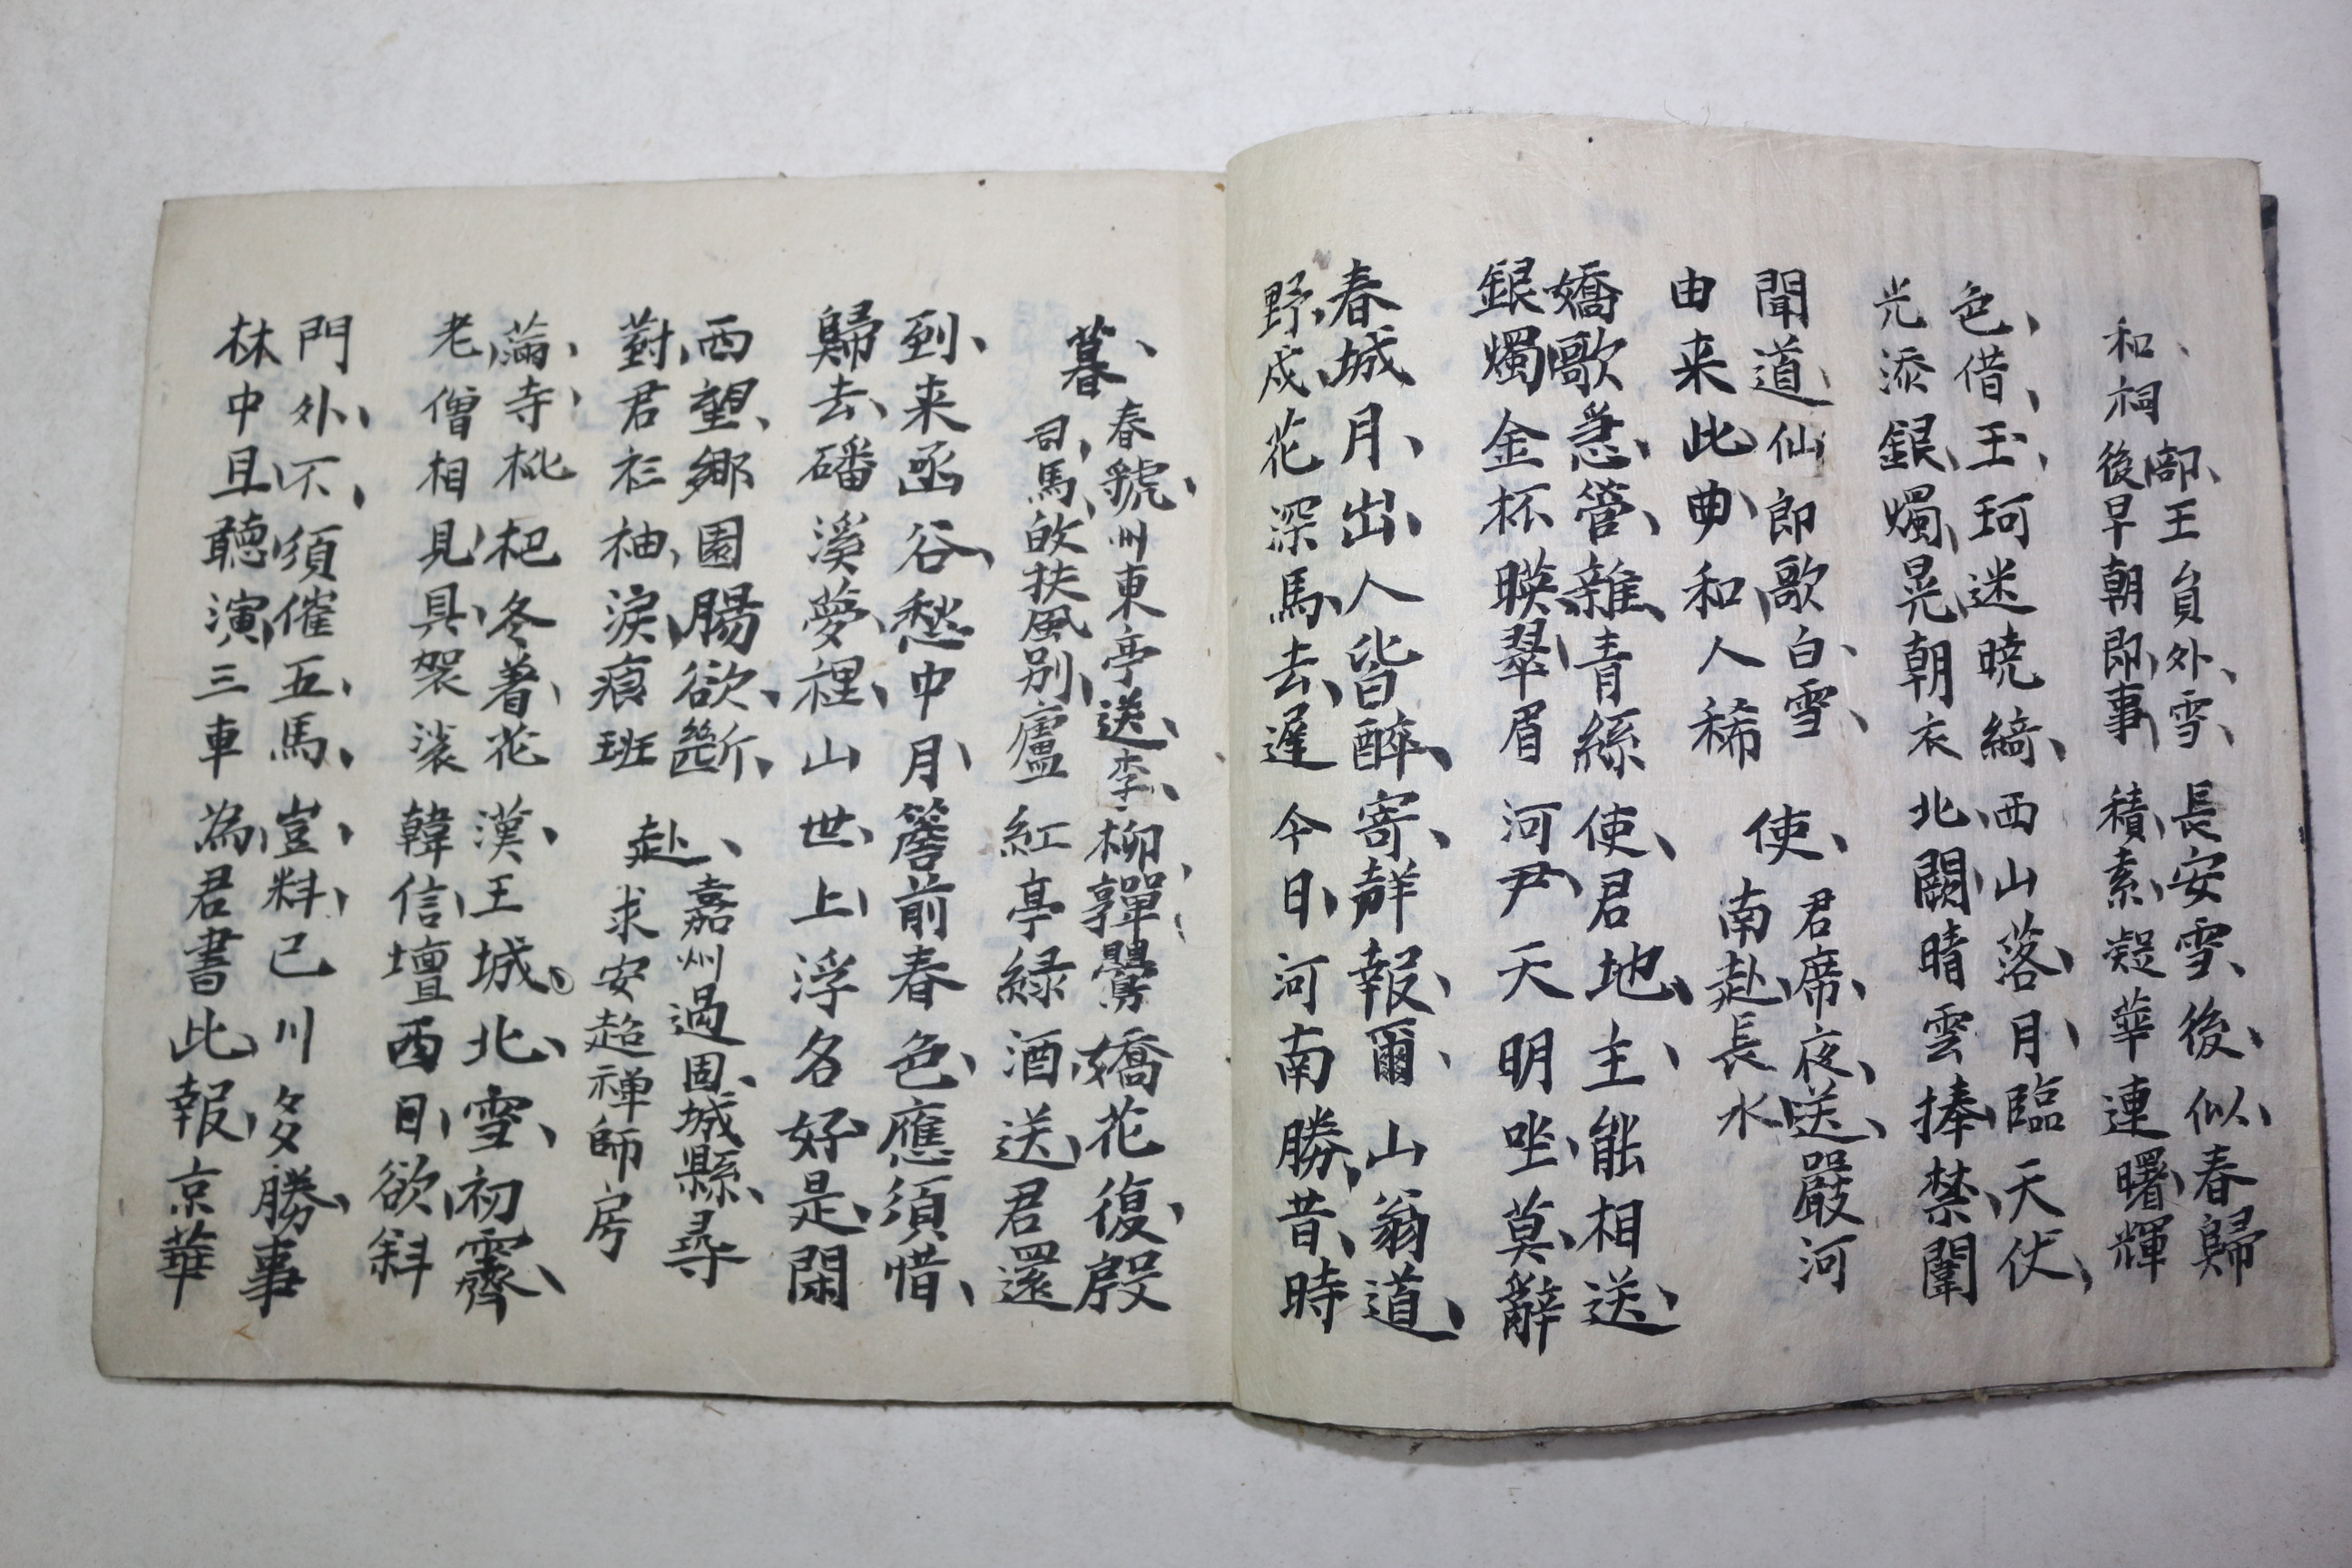 和祠
部王員外雪
後早朝即事
長安雪後似春歸
積素凝華連曙輝
色借玉珂迷曉綺
光添銀燭晃朝衣
西山落月臨天仗
北闕晴雲捧禁闈
聞道仙郎歌白雪
由来此曲和人稀
使
君席夜送嚴河
南赴長水
嬌歌急管雜青絲
銀燭金杯暎翠眉
使君地主能相送
河尹天明坐莫辭
春城月出人皆醉
野戍花深馬去遲
寄聲報爾山翁道
今日河南勝昔時
暮
春虢州東亭送李
司馬皈扶風別廬
柳嚲鶯嬌花復殷
紅亭緑酒送君還
到来函谷愁中月
歸去磻溪夢裡山
簷前春色應須惜
世上浮名好是閑
西望鄉園腸欲斷
對君衫袖淚痕班
赴
嘉州過固城縣尋
求安超禪師房
滿寺枇杷冬着花
老僧相見具袈裟
漢王城北雪初霽
韓信壇西日欲斜
門外不須催五馬
林中且聽演三車
豈料巴川多勝事
為君書此報京華